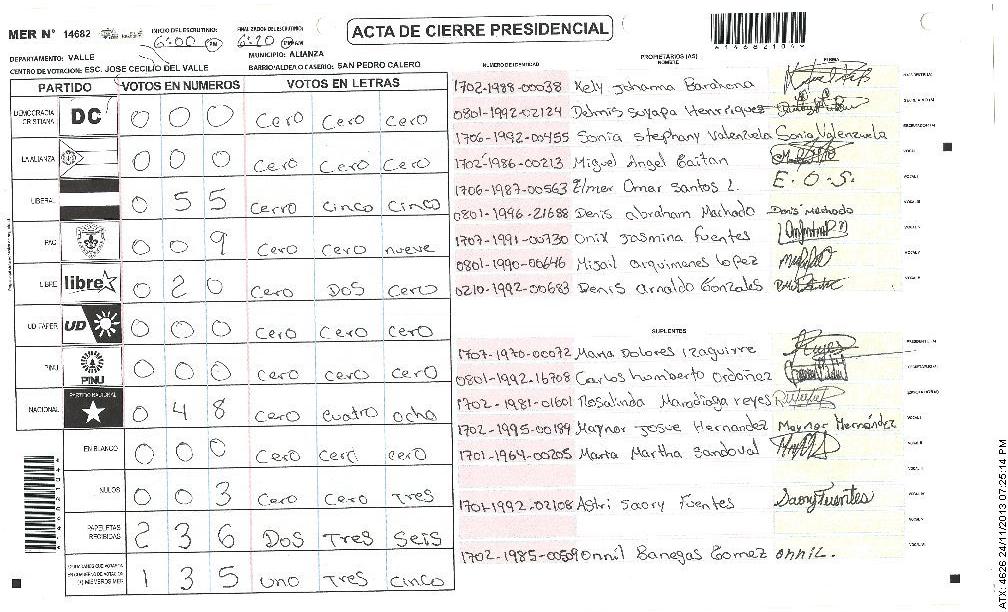 MER N° 14682
INICIO DEL ESCRUTINIO: 6:00 PM
FINALIZACION DEL ESCRUTINIO: 6:20 PM
ACTA DE CIERRE PRESIDENCIAL
DEPARTAMENTO: VALLE
MUNICIPIO: ALIANZA
CENTRO DE VOTACION: ESC. JOSE CECILIO DEL VALLE
BARRIO/ALDEA O CASERIO: SAN PEDRO CALERO
PARTIDO VOTOS EN NUMEROS VOTOS EN LETRAS
DEMOCRACIA CRISTIANA DC 0 0 0 cero cero cero
LA ALIANZA 0 0 0 cero cero cero
LIBERAL 0 5 5 cerro cinco cinco
PAC 0 0 9 cero cero nueve
LIBRE libre 0 2 0 cero DOS cero
UD FAPER UD 0 0 0 cero cero cero
PINU PINU 0 0 0 cero cero cero
NACIONAL PARTIDO NACIONAL 0 4 8 cero cuatro ocho
EN BLANCO 0 0 0 cero cero cero
NULOS 0 0 3 cero cero Tres
PAPELETAS RECIBIDAS 2 3 6 DOS Tres seis
1 3 5 uno Tres cinco
NUMERO DE IDENTIDAD PROPIETARIOS (AS) NOMBRE FIRMA
1702-1988-00038 Kely Johanna Barahona
0801-1992-02124 Delmis Suyapa Henrriquez
1706-1992-00455 Sonia Stephany Valenzuela Sonia Valenzuela
1702-1986-00213 Miguel Angel Gaitan
1706-1987-00563 Elmer Omar Santos L. E.O.S.
0801-1996-21688 Denis abraham Machado Denis Machado
1707-1991-00730 Onix Jasmina Fuentes
0801-1990-00646 Misail arquimenes Lopez
0210-1992-00683 Denis arnaldo Gonzales
SUPLENTES
1707-1970-00072 Maria Dolores Izaguirre
0801-1992-16708 Carlos humberto Ordoñez
1702-1981-01601 Rosalinda Maradiaga reyes
1702-1995-00189 Maynor Josue Hernandez Maynor Hernández
1701-1964-00205 Marta Martha Sandoval
1701-1992-02108 Astri Saory Fuentes Saory Fuentes
1702-1985-00509 Onnil Banegas Gomez onnil.
ATX: 4626 24/11/2013 07:25:14 PM